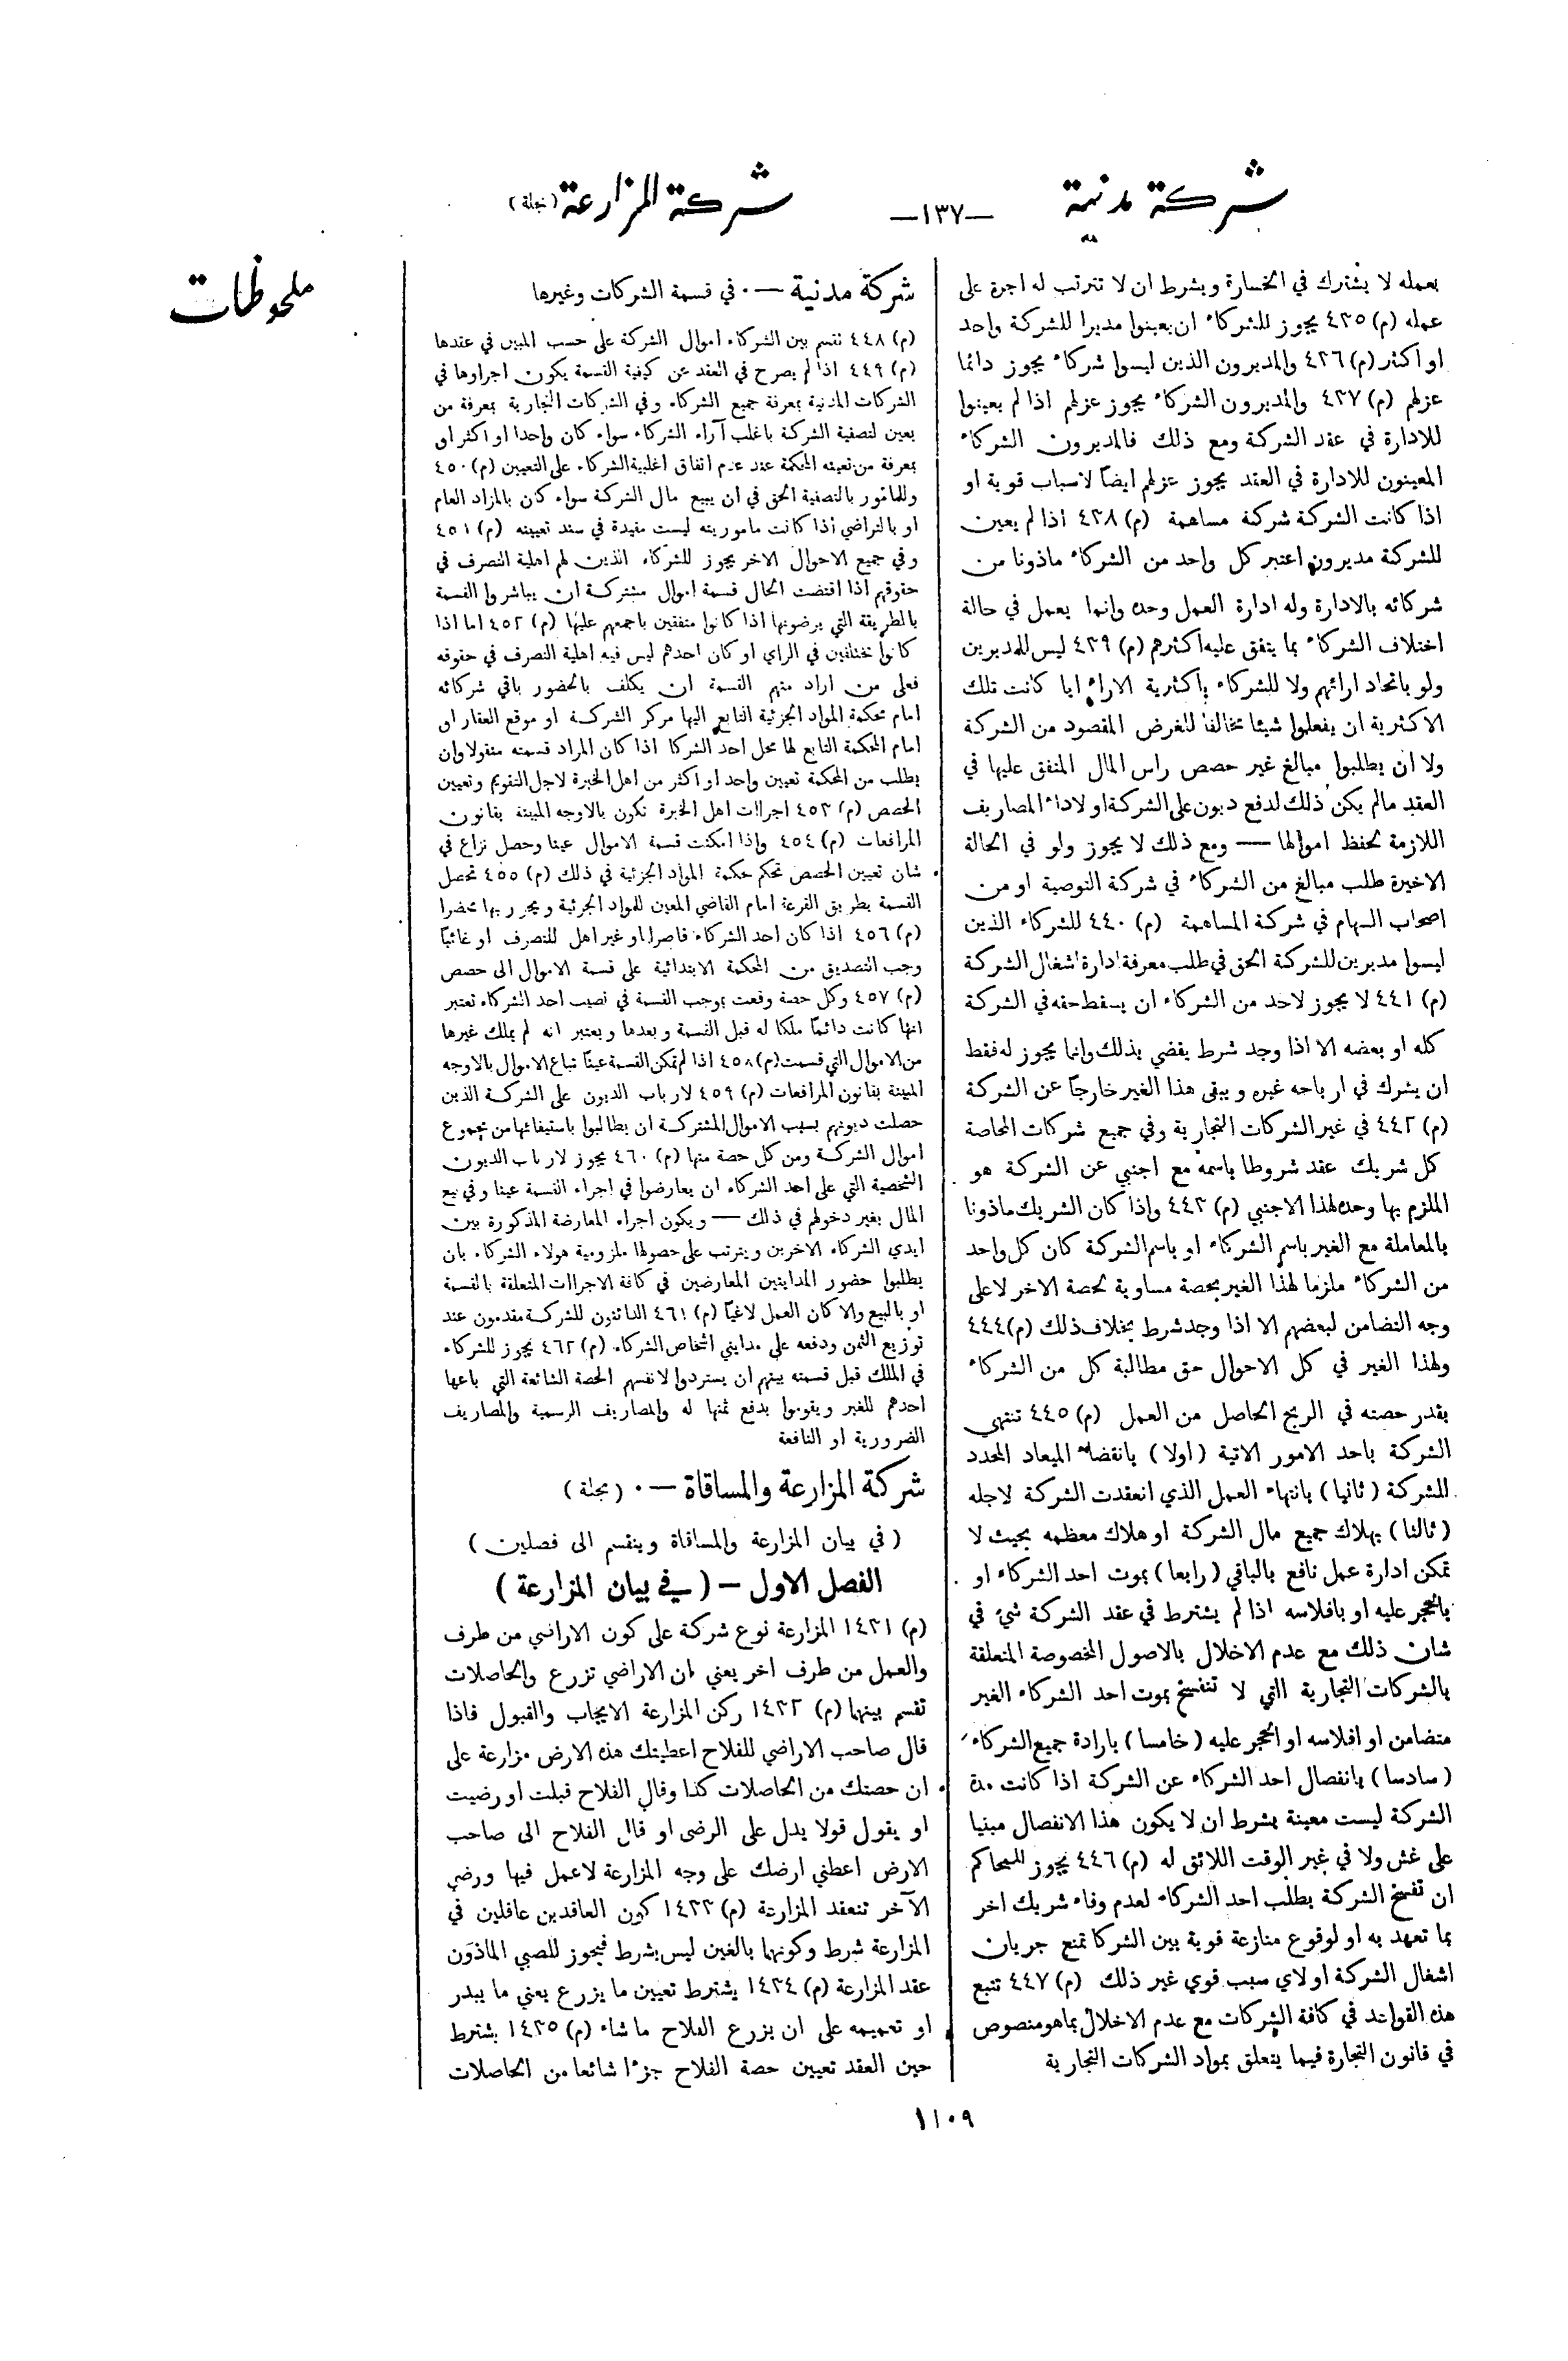 شركة مدنية
—١٣٧—
شركة المزارعة (مجلة)
بعمله لا يشترك في الخسارة وبشرط ان لا تترتب له اجرة على
عمله (م) ٤٣٥ يجوز للشركاء ان يعينوا مديرا للشركة واحد
او اكثر (م) ٤٣٦ والمديرون الذين ليسوا شركاء يجوز دائما
عزلهم (م) ٤٣٧ والمديرون الشركاء يجوز عزلهم اذا لم يعينوا
للادارة في عقد الشركة ومع ذلك فالمديرون الشركاء
المعينون للادارة في العقد يجوز عزلهم ايضاً لاسباب قوية او
اذا كانت الشركة شركة مساهمة (م) ٤٣٨ اذا لم يعين
للشركة مديرون اعتبر كل واحد من الشركاء ماذونا من
شركائه بالادارة وله ادارة العمل وحده وانما يعمل في حالة
اختلاف الشركاء بما يتفق عليه اكثرهم (م) ٤٣٩ ليس للمديرين
ولو باتحاد ارائهم ولا للشركاء باكثرية الاراء ايا كانت تلك
الاكثرية ان يفعلوا شيئا مخالفا للغرض المقصود من الشركة
ولا ان يطلبوا مبالغ غير حصص راس المال المتفق عليها في
العقد مالم يكن ذلك لدفع ديون على الشركة او لاداء المصاريف
اللازمة لحفظ اموالها — ومع ذلك لا يجوز ولو في الحالة
الاخيرة طلب مبالغ من الشركاء في شركة التوصية او من
اصحاب السهام في شركة المساهمة (م) ٤٤٠ للشركاء الذين
ليسوا مديرين للشركة الحق في طلب معرفة ادارة اشغال الشركة
(م) ٤٤١ لا يجوز لاحد من الشركاء ان يسقط حقه في الشركة
كله او بعضه الا اذا وجد شرط يقضي بذلك وانما يجوز له فقط
ان يشرك في ارباحه غيره ويبقى هذا الغير خارجاً عن الشركة
(م) ٤٤٢ في غير الشركات التجارية وفي جميع شركات المحاصة
كل شريك عقد شروطا باسمه مع اجنبي عن الشركة هو
الملزم بها وحده لهذا الاجنبي (م) ٤٤٣ واذا كان الشريك ماذونا
بالمعاملة مع الغير باسم الشركاء او باسم الشركة كان كل واحد
من الشركاء ملزما لهذا الغير بحصة مساوية لحصة الاخر لا على
وجه التضامن لبعضهم الا اذا وجد شرط بخلاف ذلك (م) ٤٤٤
ولهذا الغير في كل الاحوال حق مطالبة كل من الشركاء
بقدر حصته في الربح الحاصل من العمل (م) ٤٤٥ تنتهي
الشركة باحد الامور الاتية (اولا) بانقضاء الميعاد المحدد
للشركة (ثانيا) بانتهاء العمل الذي انعقدت الشركة لاجله
(ثالثا) بهلاك جميع مال الشركة او هلاك معظمه بحيث لا
تمكن ادارة عمل نافع بالباقي (رابعا) بموت احد الشركاء او
بالحجر عليه او بافلاسه اذا لم يشترط في عقد الشركة شيء في
شان ذلك مع عدم الاخلال بالاصول المخصوصة المتعلقة
بالشركات التجارية التي لا تنفسخ بموت احد الشركاء الغير
متضامن او افلاسه او الحجر عليه (خامسا) بارادة جميع الشركاء
(سادسا) بانفصال احد الشركاء عن الشركة اذا كانت مدة
الشركة ليست معينة بشرط ان لا يكون هذا الانفصال مبنيا
على غش ولا في غير الوقت اللائق له (م) ٤٤٦ يجوز للمحاكم
ان تفسخ الشركة بطلب احد الشركاء لعدم وفاء شريك اخر
بما تعهد به او لوقوع منازعة قوية بين الشركا تمنع جريان
اشغال الشركة او لاي سبب قوي غير ذلك (م) ٤٤٧ تتبع
هذه القواعد في كافة الشركات مع عدم الاخلال بما هو منصوص
في قانون التجارة فيما يتعلق بمواد الشركات التجارية
شركة مدنية —٠ في قسمة الشركات وغيرها
(م) ٤٤٨ تقسم بين الشركاء اموال الشركة على حسب المبين في عقدها
(م) ٤٤٩ اذا لم يصرح في العقد عن كيفية القسمة يكون اجراوها في
الشركات المدنية بمعرفة جميع الشركاء وفي الشركات التجارية بمعرفة من
يعين لتصفية الشركة باغلب آراء الشركاء سواء كان واحدا او اكثر او
بمعرفة من تعينه المحكمة عند عدم اتفاق اغلبية الشركاء على التعيين (م) ٤٥٠
وللمامور بالتصفية الحق في ان يبيع مال الشركة سواء كان بالمزاد العام
او بالتراضي اذا كانت ماموريته ليست مقيدة في سند تعيينه (م) ٤٥١
وفي جميع الاحوال الاخر يجوز للشركاء الذين لهم اهلية التصرف في
حقوقهم اذا اقتضت الحال قسمة اموال مشتركة ان يباشروا القسمة
بالطريقة التي يرضونها اذا كانوا متفقين باجمعهم عليها (م) ٤٥٢ اما اذا
كانوا مختلفين في الراي او كان احدهم ليس فيه اهلية التصرف في حقوقه
فعلى من اراد منهم القسمة ان يكلف بالحضور باقي شركائه
امام محكمة المواد الجزئية التابع اليها مركز الشركة او موقع العقار او
امام المحكمة التابع لها محل احد الشركا اذا كان المراد قسمته منقولا وان
يطلب من المحكمة تعيين واحد او اكثر من اهل الخبرة لاجل التقويم وتعيين
الحصص (م) ٤٥٣ اجراات اهل الخبرة تكون بالاوجه المبينة بقانون
المرافعات (م) ٤٥٤ واذا امكنت قسمة الاموال عينا وحصل نزاع في
شان تعيين الحصص تحكم محكمة المواد الجزئية في ذلك (م) ٤٥٥ تحصل
القسمة بطريق القرعة امام القاضي المعين للمواد الجزئية ويحرر بها محضرا
(م) ٤٥٦ اذا كان احد الشركاء قاصرا او غير اهل للتصرف او غائباً
وجب التصديق من المحكمة الابتدائية على قسمة الاموال الى حصص
(م) ٤٥٧ وكل حصة وقعت بموجب القسمة في نصيب احد الشركاء تعتبر
انها كانت دائماً ملكا له قبل القسمة وبعدها ويعتبر انه لم يملك غيرها
من الاموال التي قسمت (م) ٤٥٨ اذا لم تمكن القسمة عيناً تباع الاموال بالاوجه
المبينة بقانون المرافعات (م) ٤٥٩ لارباب الديون على الشركة الذين
حصلت ديونهم بسبب الاموال المشتركة ان يطالبوا باستيفائها من مجموع
اموال الشركة ومن كل حصة منها (م) ٤٦٠ يجوز لارباب الديون
الشخصية التي على احد الشركاء ان يعارضوا في اجراء القسمة عينا وفي بيع
المال بغير دخولهم في ذلك — ويكون اجراء المعارضة المذكورة بين
ايدي الشركاء الاخرين ويترتب على حصولها ملزومية هولاء الشركاء بان
يطلبوا حضور المداينين المعارضين في كافة الاجراات المتعلقة بالقسمة
او بالبيع والا كان العمل لاغياً (م) ٤٦١ الدائنون للشركة مقدمون عند
توزيع الثمن ودفعه على مدايني اشخاص الشركاء (م) ٤٦٢ يجوز للشركاء
في الملك قبل قسمته بينهم ان يستردوا لانفسهم الحصة الشائعة التي باعها
احدهم للغير ويقوموا بدفع ثمنها له والمصاريف الرسمية والمصاريف
الضرورية او النافعة
شركة المزارعة والمساقاة —٠ (مجلة)
(في بيان المزارعة والمساقاة وينقسم الى فصلين)
الفصل الاول — (في بيان المزارعة)
(م) ١٤٣١ المزارعة نوع شركة على كون الاراضي من طرف
والعمل من طرف اخر يعني ان الاراضي تزرع والحاصلات
تقسم بينهما (م) ١٤٣٢ ركن المزارعة الايجاب والقبول فاذا
قال صاحب الاراضي للفلاح اعطيتك هذه الارض مزارعة على
ان حصتك من الحاصلات كذا وقال الفلاح قبلت او رضيت
او يقول قولا يدل على الرضى او قال الفلاح الى صاحب
الارض اعطني ارضك على وجه المزارعة لاعمل فيها ورضي
الآخر تنعقد المزارعة (م) ١٤٣٣ كون العاقدين عاقلين في
المزارعة شرط وكونهما بالغين ليس بشرط فيجوز للصبي الماذون
عقد المزارعة (م) ١٤٣٤ يشترط تعيين ما يزرع يعني ما يبدر
او تعميمه على ان يزرع الفلاح ما شاء (م) ١٤٣٥ يشترط
حين العقد تعيين حصة الفلاح جزءا شائعا من الحاصلات
ملحوظات
١١٠٩